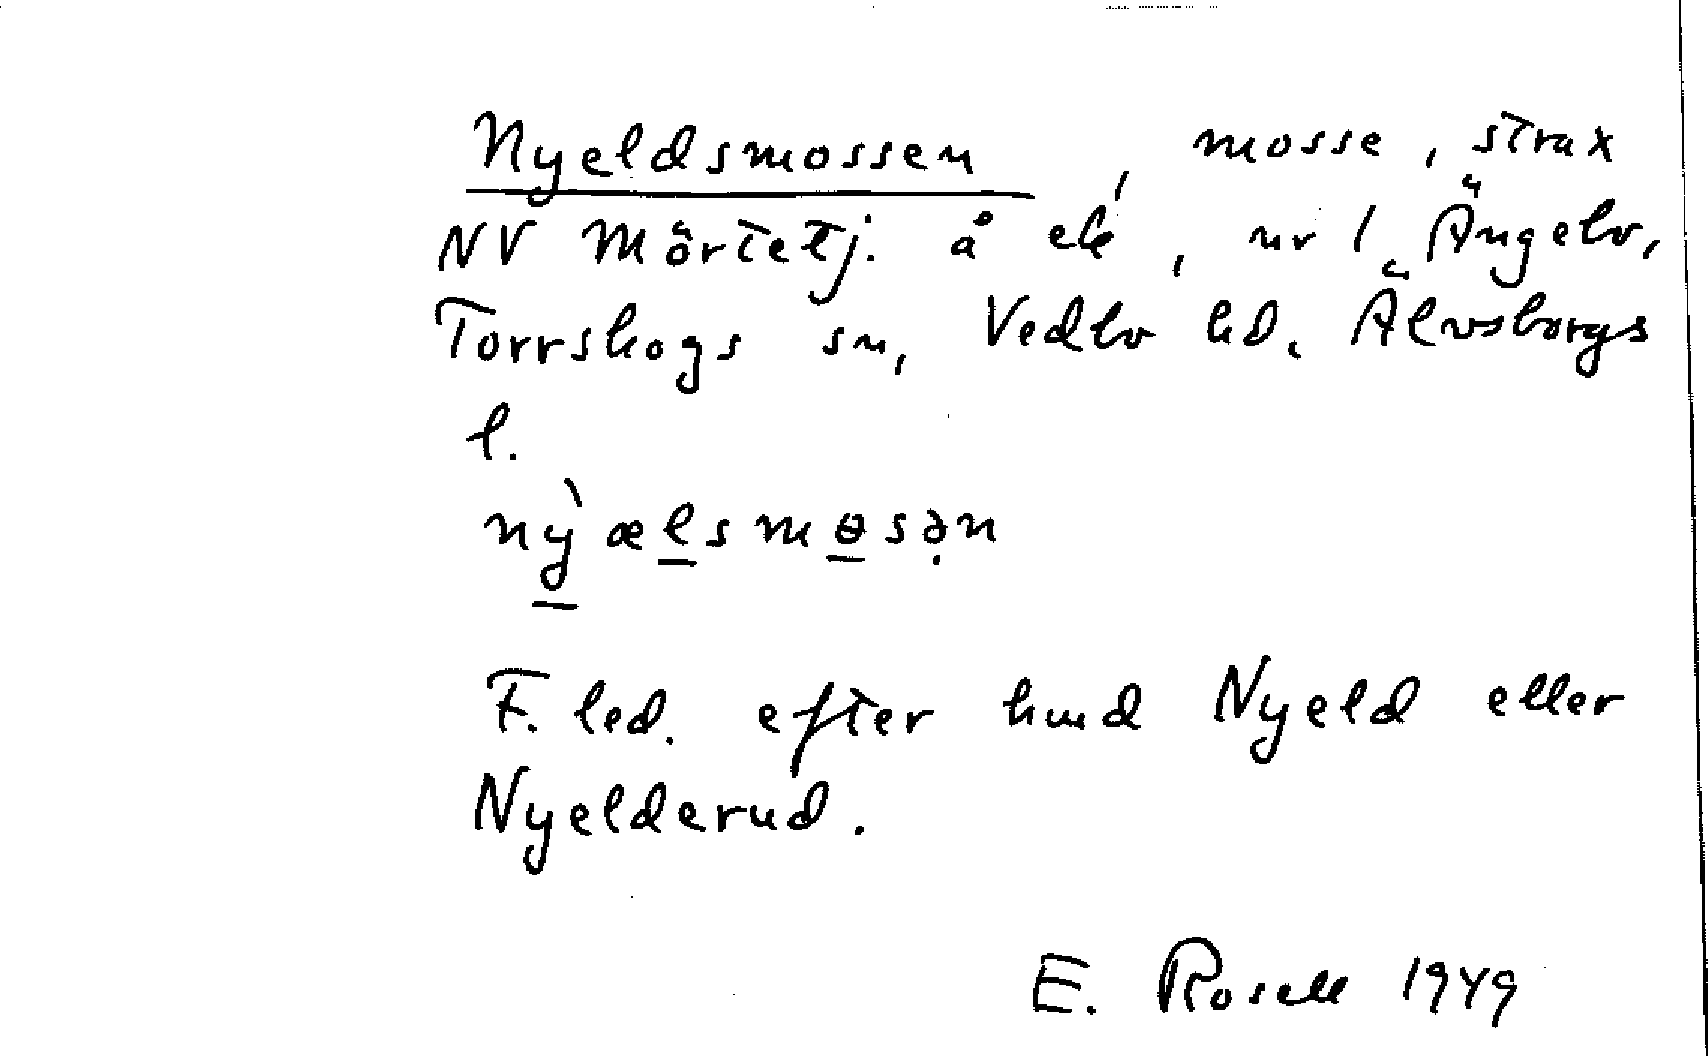 Nyeldsmossen, mosse, strax
NV Mörtetj. å ek, nr 1 Ängebo,
Torrskogs sn, Vedbo hd. Älvsborgs
l.
nỳæl̲smɵ̲sə̣n
F. led. efter hmd Nyeld eller
Nyelderud.
E. Rosell 1949